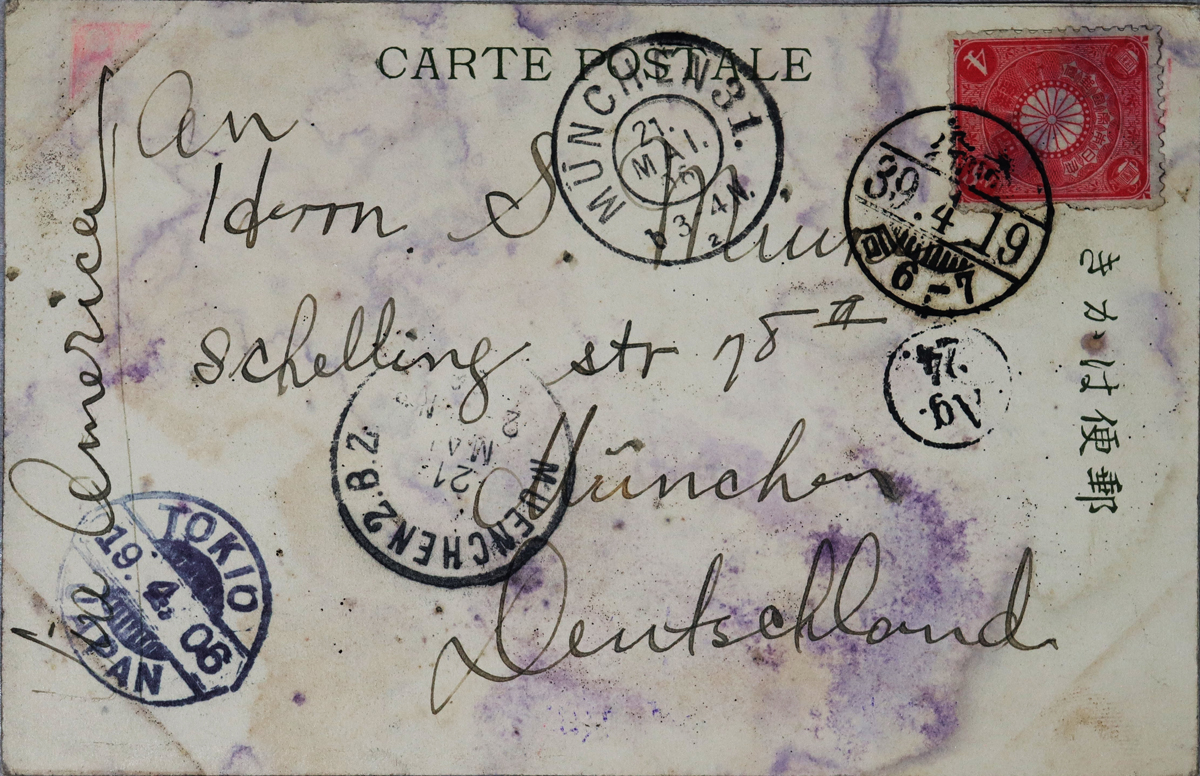 CARTE POSTALE
An
Herrn S.
Schelling str 78 II
München
Deutschland
Via America
きかは便郵
4
MÜNCHEN 31.
21.
MAI.
3-4 N.
39.4.19
6-7
19.
14.
MUENCHEN 2.B.Z.
21
MAI
TOKIO
19.4.06
JAPAN